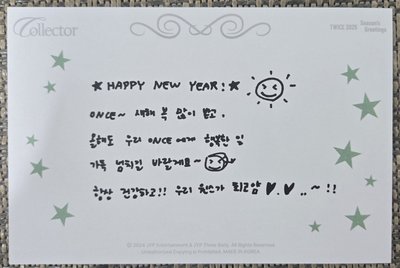 Collector
TWICE 2025 Season's Greetings
★ HAPPY NEW YEAR! ★
ONCE~ 새해 복 많이 받고,
올해도 우리 ONCE에게 행복한 일
가득 넘치길 바랄게요~
항상 건강하고!! 우리 원스가 최고얌 ♥.♥..~!!
© 2024 JYP Entertainment & JYP Three Sixty. All Rights Reserved.
Unauthorized Copying is Prohibited. MADE IN KOREA.